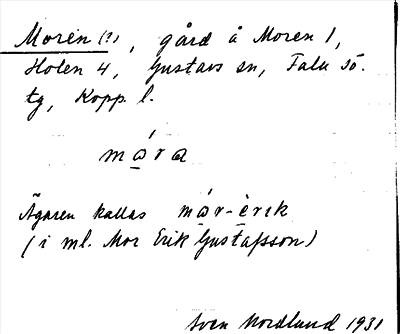 Moren (?), gård å Moren 1,
Holen 4, Gustavs sn, Falu sö.
tg, Kopp. l.
mɷ́ra
Ägaren kallas mɷ́r-èrɪk
(i ml. Mor Erik Gustafsson)
Sven Nordlund 1931